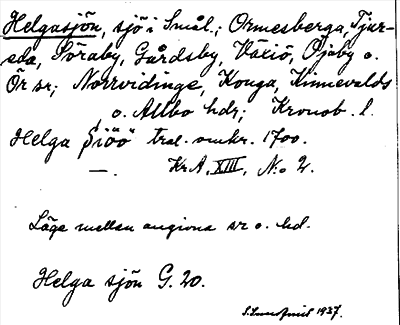 Helgasjön, sjö i Smål.; Ormesberga, Tjur-
eda, Söraby, Gårdsby, Växiö, Öjaby o.
Ör sr; Norrvidinge, Konga, Kinnevalds
o. Allbo hdr; Kronob. l.
Helga Siöö tral. omkr. 1700.
— KrA, XIII, No 2.
Läge mellan angivna sr o. hd.
Helga sjön G. 20.
1937.